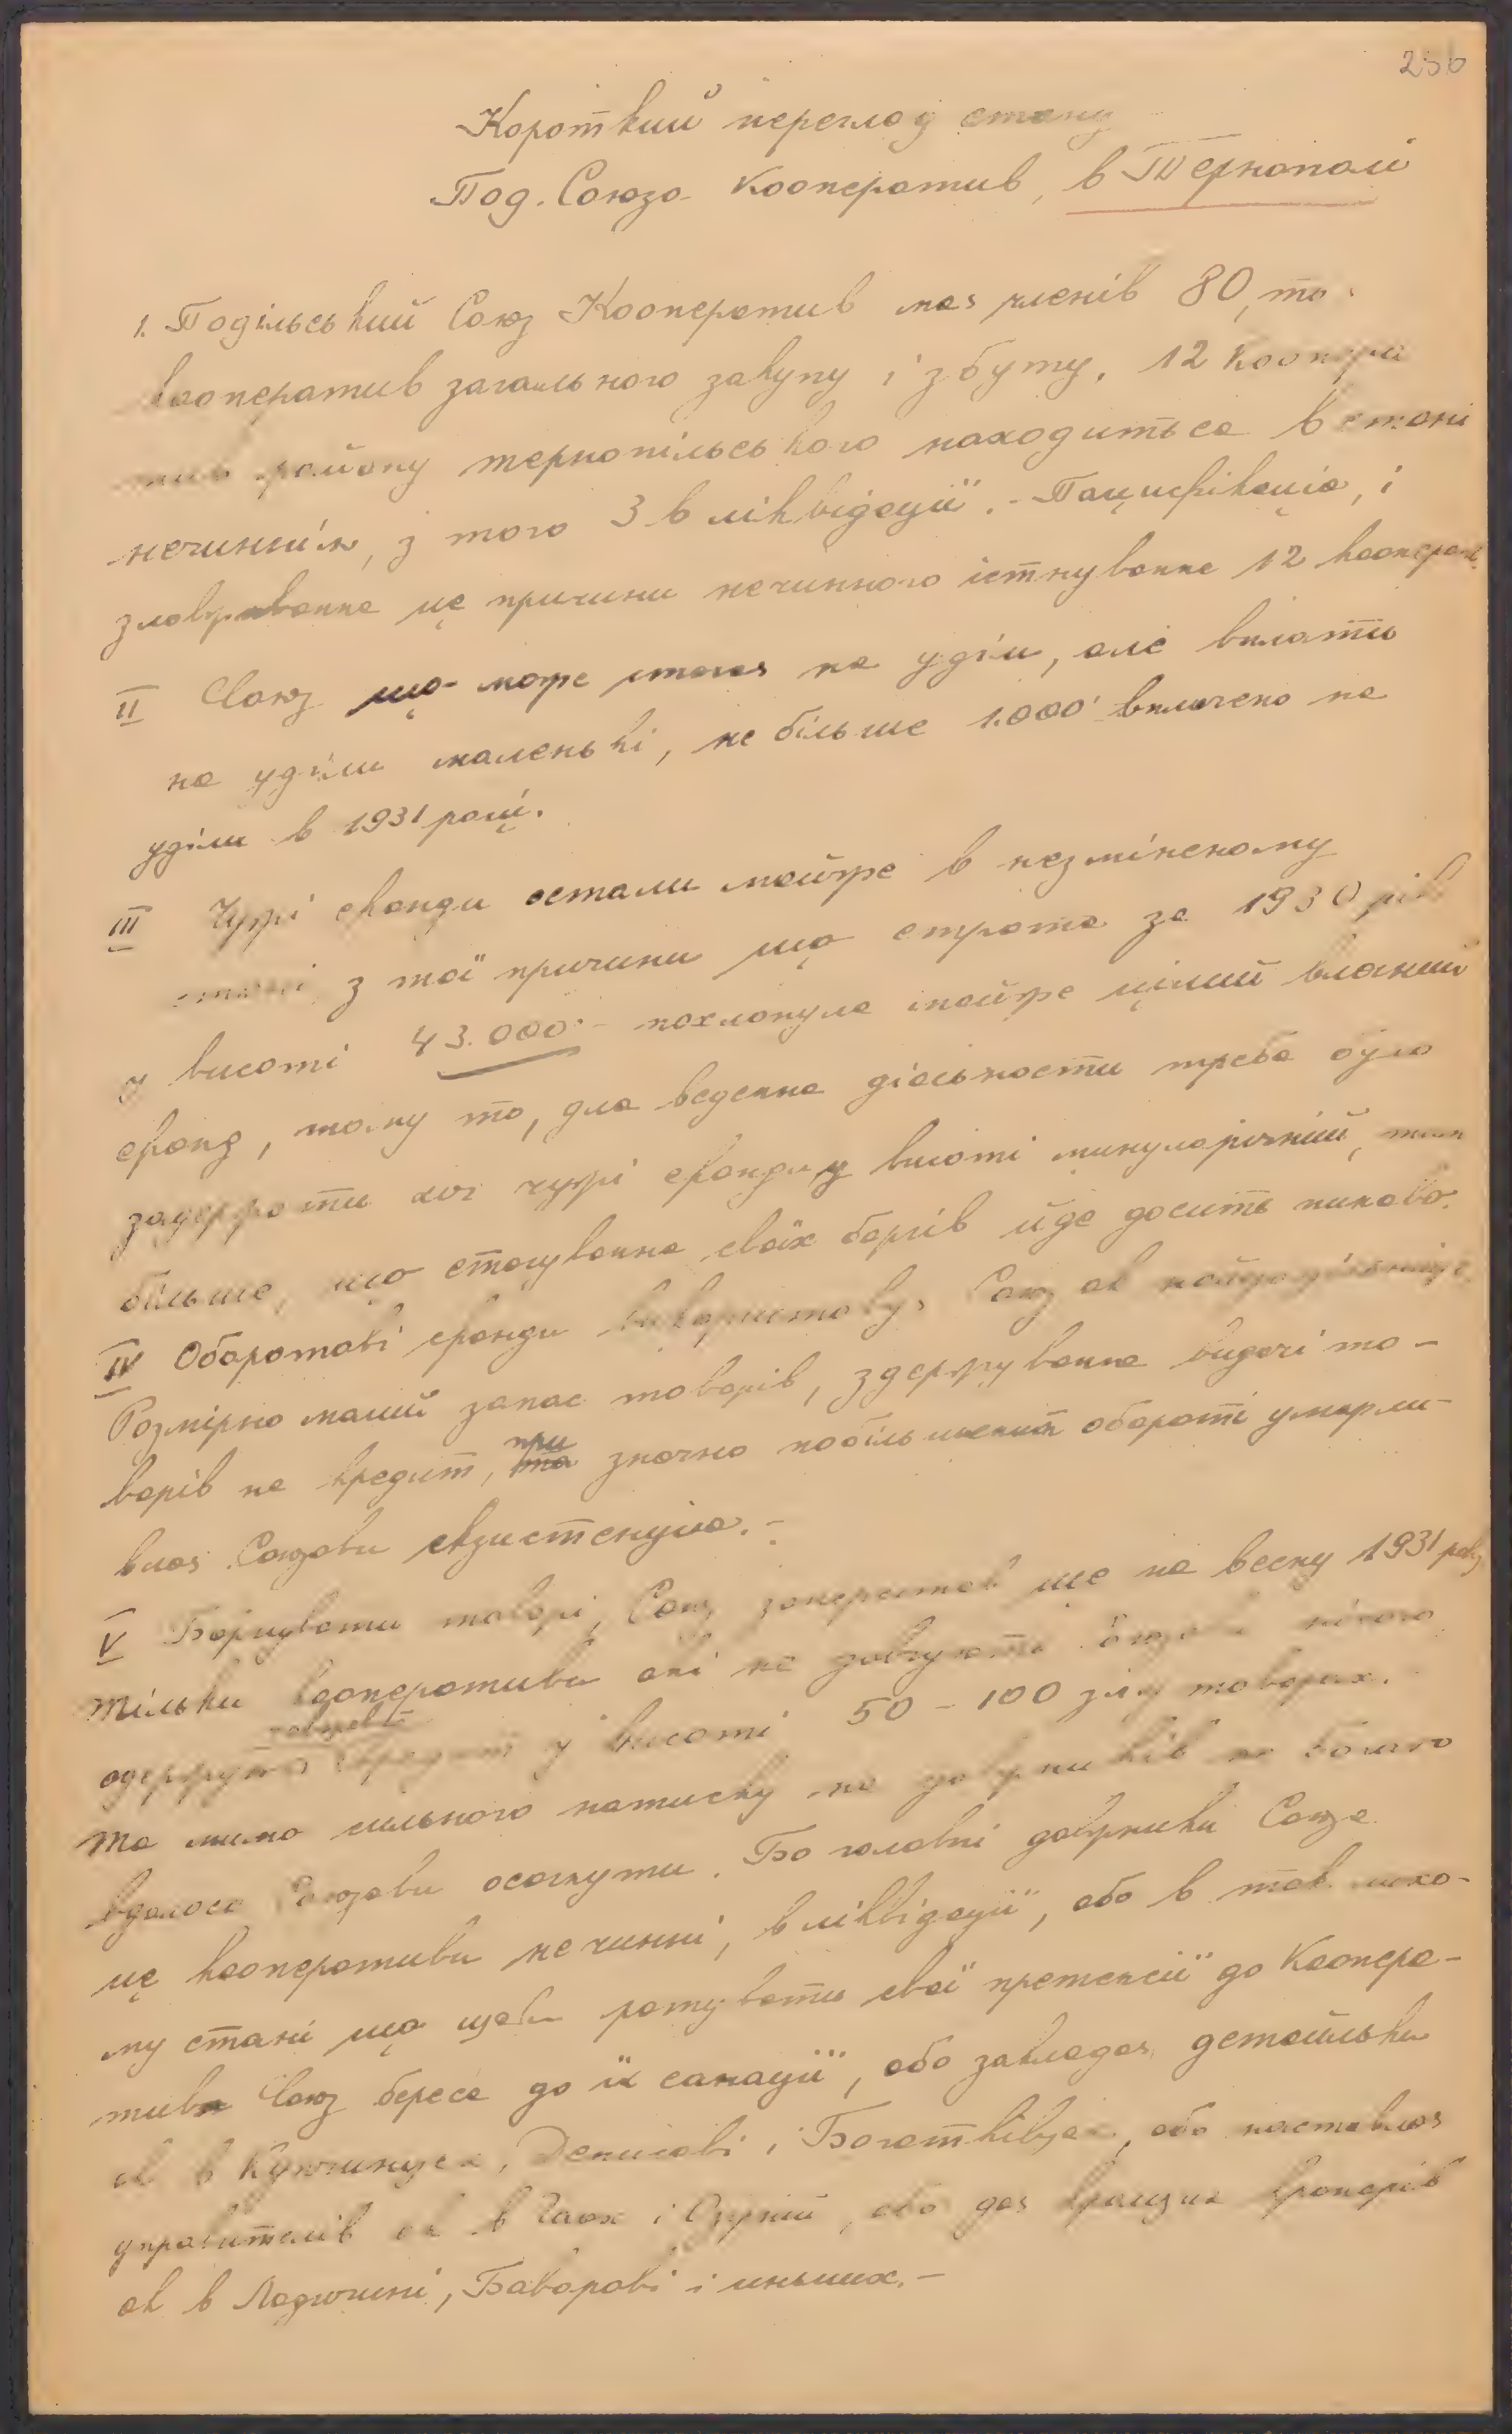 256
Короткий перегляд стану
Под. Союза Кооператив, в Тернополі
1. Подільський Союз Кооператив має членів 80, то
кооператив загального закупу і збуту. 12 коопера
тив району тернопільського находиться в стані
нечиннім, з того 3 в ліквідації. - Пацифікація, і
зловживання це причини нечинного істнування 12 кооперат.
II Союз що може стягає на уділи, але вплати
на уділи маленькі, не більше 1.000 - вплачено на
уділи в 1931 році.
III Чужі фонди остали майже в незміненому
стані з тої причини що страта за 1930 рік
у висоті 43.000 - похлонула майже цілий власний
фонд, тому то, для ведення діяльности треба було
задержати хоч чужі фонди у висоті минулорічній, тим
більше, що стягування своїх боргів йде досить пиново.
IV Оборотові фонди використовує Союз як найдоцільніще.
Розмірно малий запас товарів, здержування видачі то-
варів на кредит, при значно побільшеним обороті уможли-
влює Союзови екзистенцію. -
V Боргувати товарі, Союз заперестав ще на весну 1931 року
Тільки кооперативи які не довгують Союзови нічого
одержують кредит у висоті 50 - 100 зл. у товарах.
Та мимо сильного натиску на довжників не богато
вдалося Союзови осягнути. Бо головні довжники Союза
це кооперативи не чинні, в ліквідації, або в так лихо-
му стані що щоби ратувати свої претенсії до Коопера-
тиви Союз береся до їх санації, або закладає детайльки
як в Купчинцях, Денисові і Богатківцях, або наставляє
управителів як в Гаях і Озірній, або дає кращих крамарів
як в Ладичині, Баворові і иньших. -